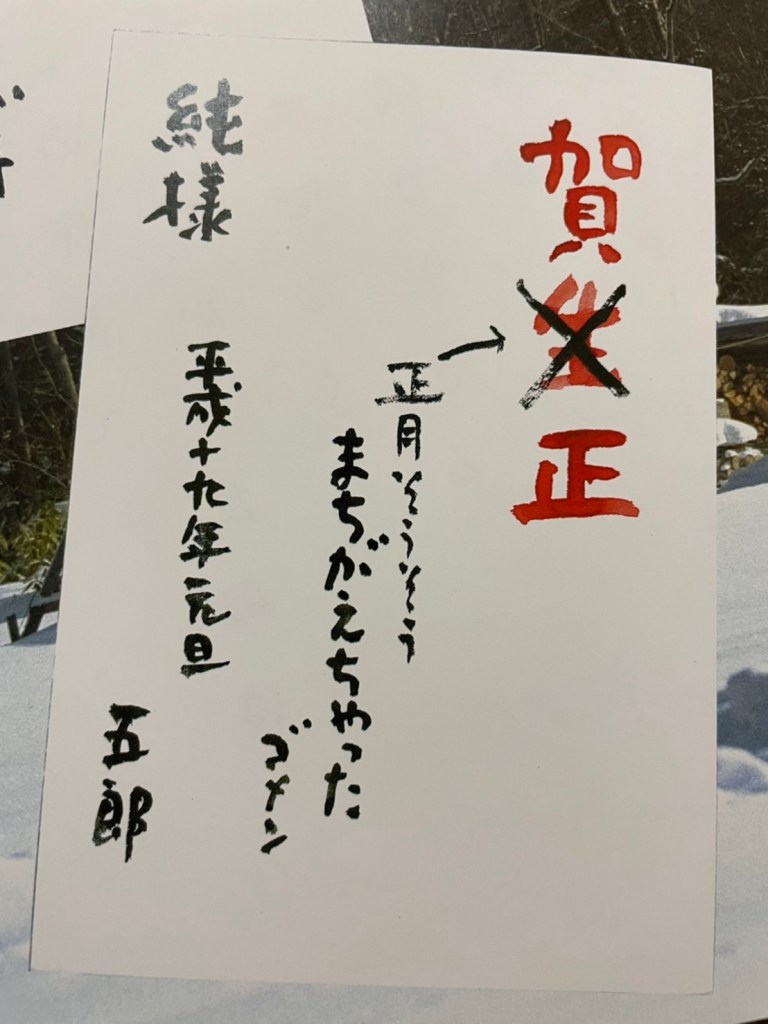 賀生正
正月そうそう
まちがえちゃった
ゴメン
平成十九年元旦
純様
五郎